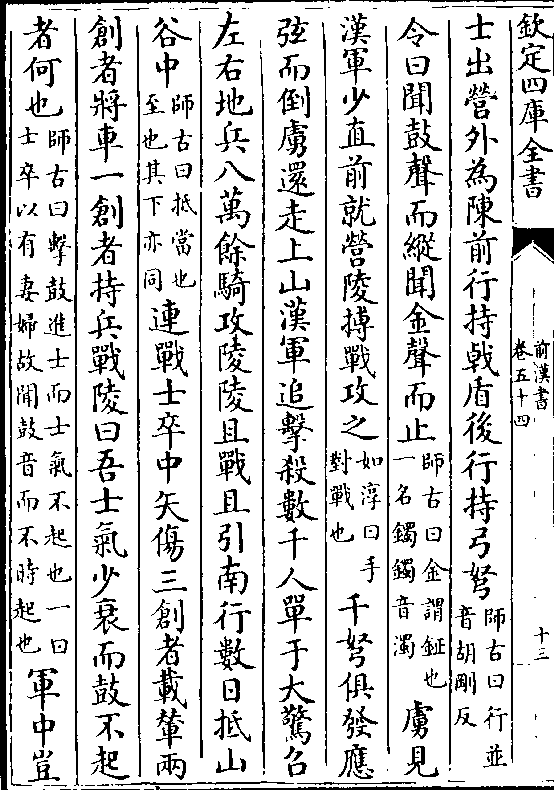 欽定四庫全書
前漢書
卷五十四
十三
士出營外為陳前行持戟盾後行持弓弩師古曰行並音胡剛反
令曰聞鼓聲而縱聞金聲而止師古曰金謂鉦也一名鐲鐲音濁虜見
漢軍少直前就營陵搏戰攻之如淳曰手對戰也千弩俱發應
弦而倒虜還走上山漢軍追擊殺數千人單于大驚召
左右地兵八萬餘騎攻陵陵且戰且引南行數日抵山
谷中師古曰抵當也至也其下亦同連戰士卒中矢傷三創者載輦兩
創者將車一創者持兵戰陵曰吾士氣少衰而鼓不起
者何也師古曰擊鼓進士而士氣不起也一曰士卒以有妻婦故聞鼓音而不時起也軍中豈